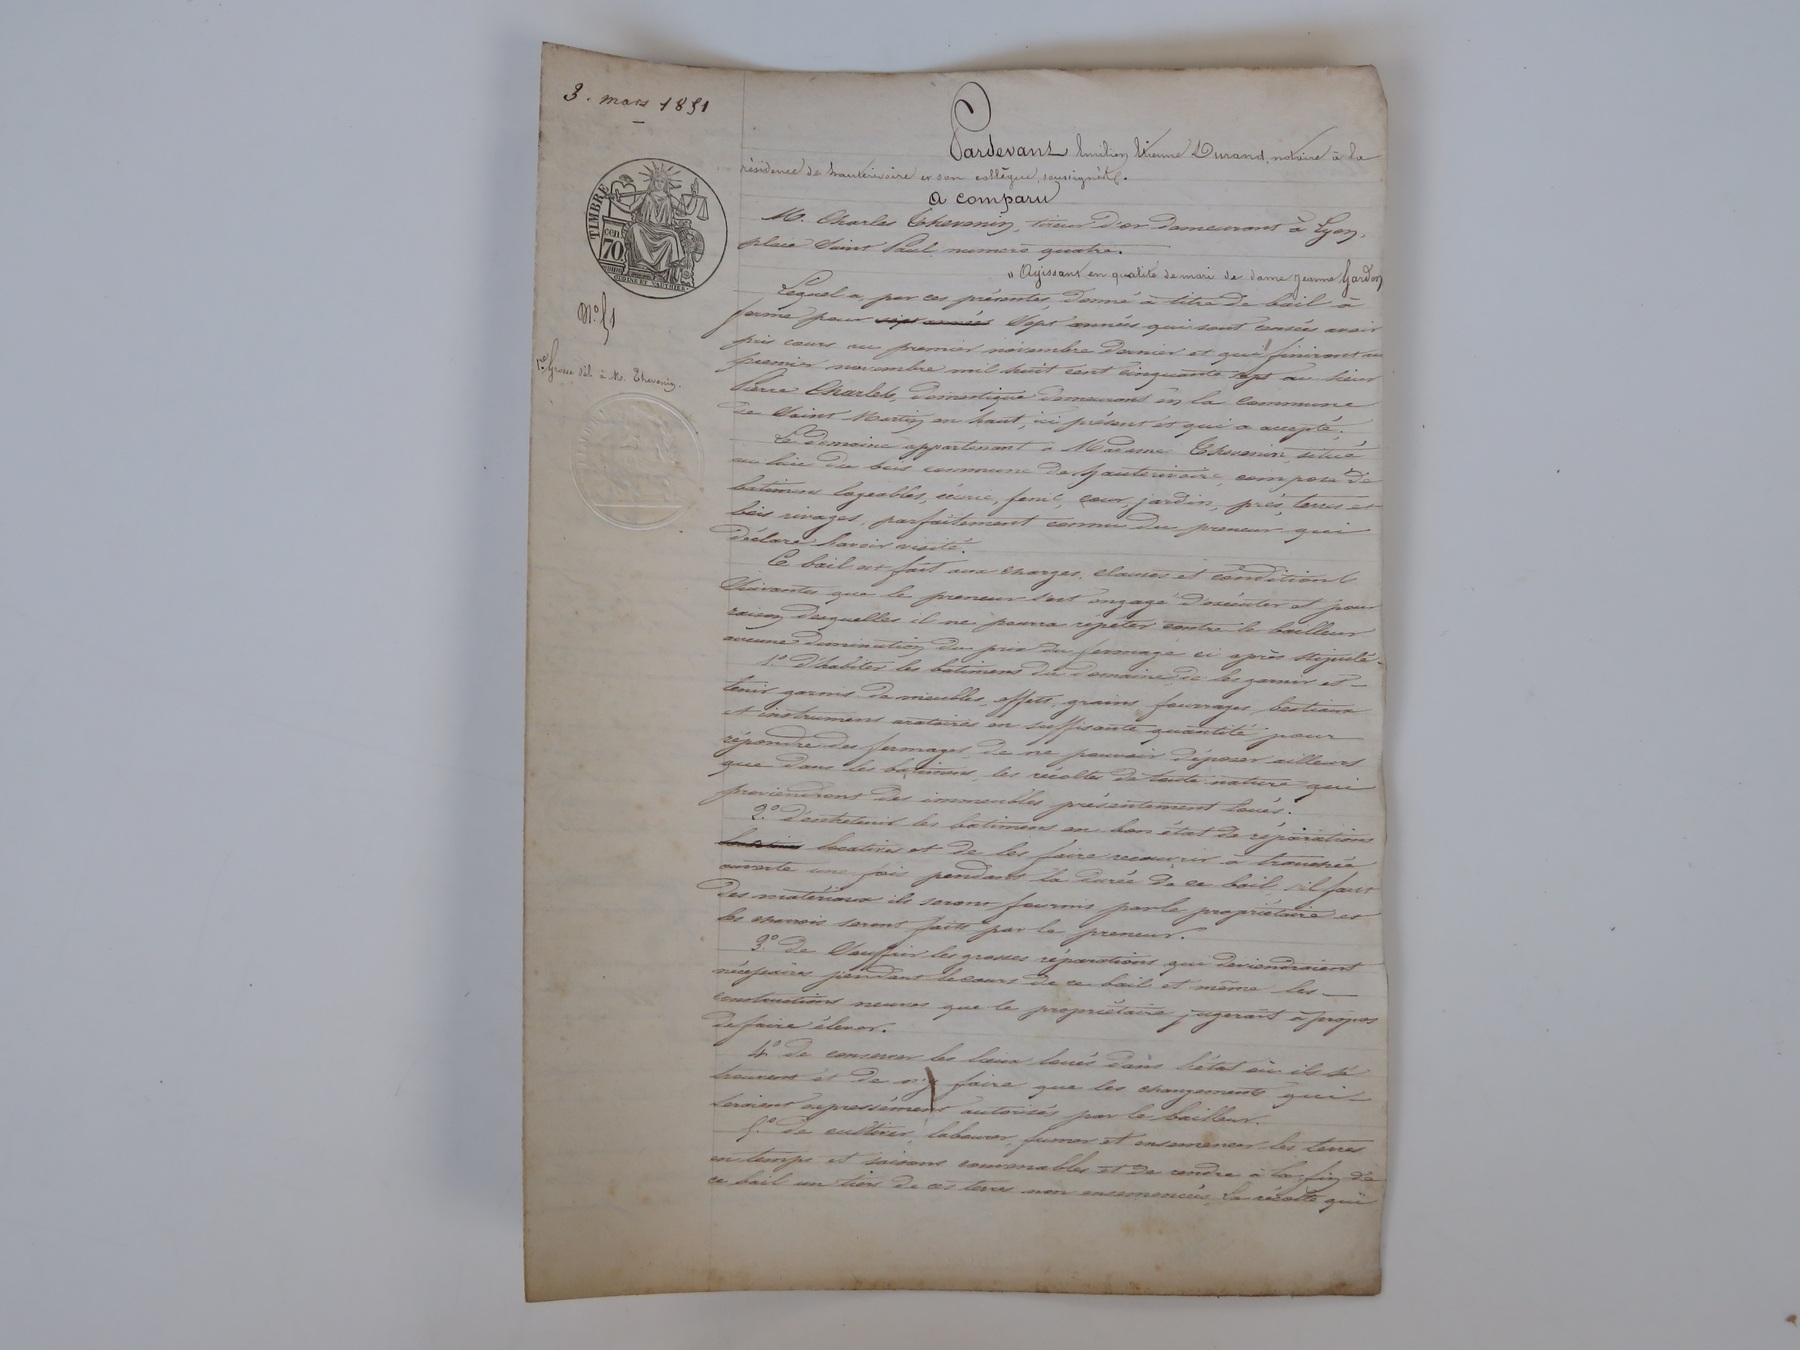 3. mars 1851
TIMBRE
cen
70
OUDINÉ ET VAUTHIER.
N.º 51
1re Grosse dél. à M. Thevenin.
Pardevant Emilien Etienne Durand, notaire à la
résidence de hauterivoire et son collègue, soussignés.
A comparu
M. Charles Thevenin, tireur d'or demeurant à Lyon,
place Saint Paul numero quatre.
Agissant en qualité de mari de dame jeanne Gardon
Lequel a par ces présentes donné à titre de bail à
ferme pour sept années Sept années qui sont censées avoir
pris cours au premier novembre dernier et qui finiront au
premier novembre mil huit cent cinquante sept au sieur
Pierre Charles, domestique demeurant en la commune
de Saint Martin en haut, ici présent et qui a accepté;
Le domaine appartenant à Madame Thevenin situé
au lieu du bois commune de hauterivoire, composé de
batimens logeables, écurie, fenil, cour, jardin, prés, terres et
bois rivages, parfaitement connu du preneur qui
déclare l'avoir visité.
Ce bail est fait aux charges, clauses et conditions
Suivantes que le preneur s'est engagé d'exécuter et pour
raison desquelles il ne pourra répéter contre le bailleur
aucune diminution du prix du fermage ci après stipulé.
1.º d'habiter les batimens du domaine, de les garnir et
tenir garnis de meubles, effets, grains, fourrages, bestiaux
et instrumens aratoires en suffisante quantité pour
répondre des fermages, de ne pouvoir déposer ailleurs
que dans les batimens, les récoltes de toute nature qui
proviendront des immeubles présentement loués.
2.º d'entretenir les batimens en bon état de réparations
locatives et de les faire recouvrir à tranchée
ouverte une fois pendant la durée de ce bail, s'il faut
des matériaux ils seront fournis par le propriétaire et
les charrois seront faits par le preneur.
3.º de Souffrir les grosses réparations qui deviendraient
nécessaires pendant le cours de ce bail et même les
constructions neuves que le propriétaire jugerait à propos
de faire élever.
4.º de conserver les lieux loués dans l'état où ils se
trouvent et de n'y faire que les changements qui
seraient expressément autorisés par le bailleur.
5.º de cultiver, labourer, fumer et ensemencer les terres
en temps et saisons convenables et de rendre à la fin de
ce bail un tiers de ces terres non ensemencées, la récolte qui